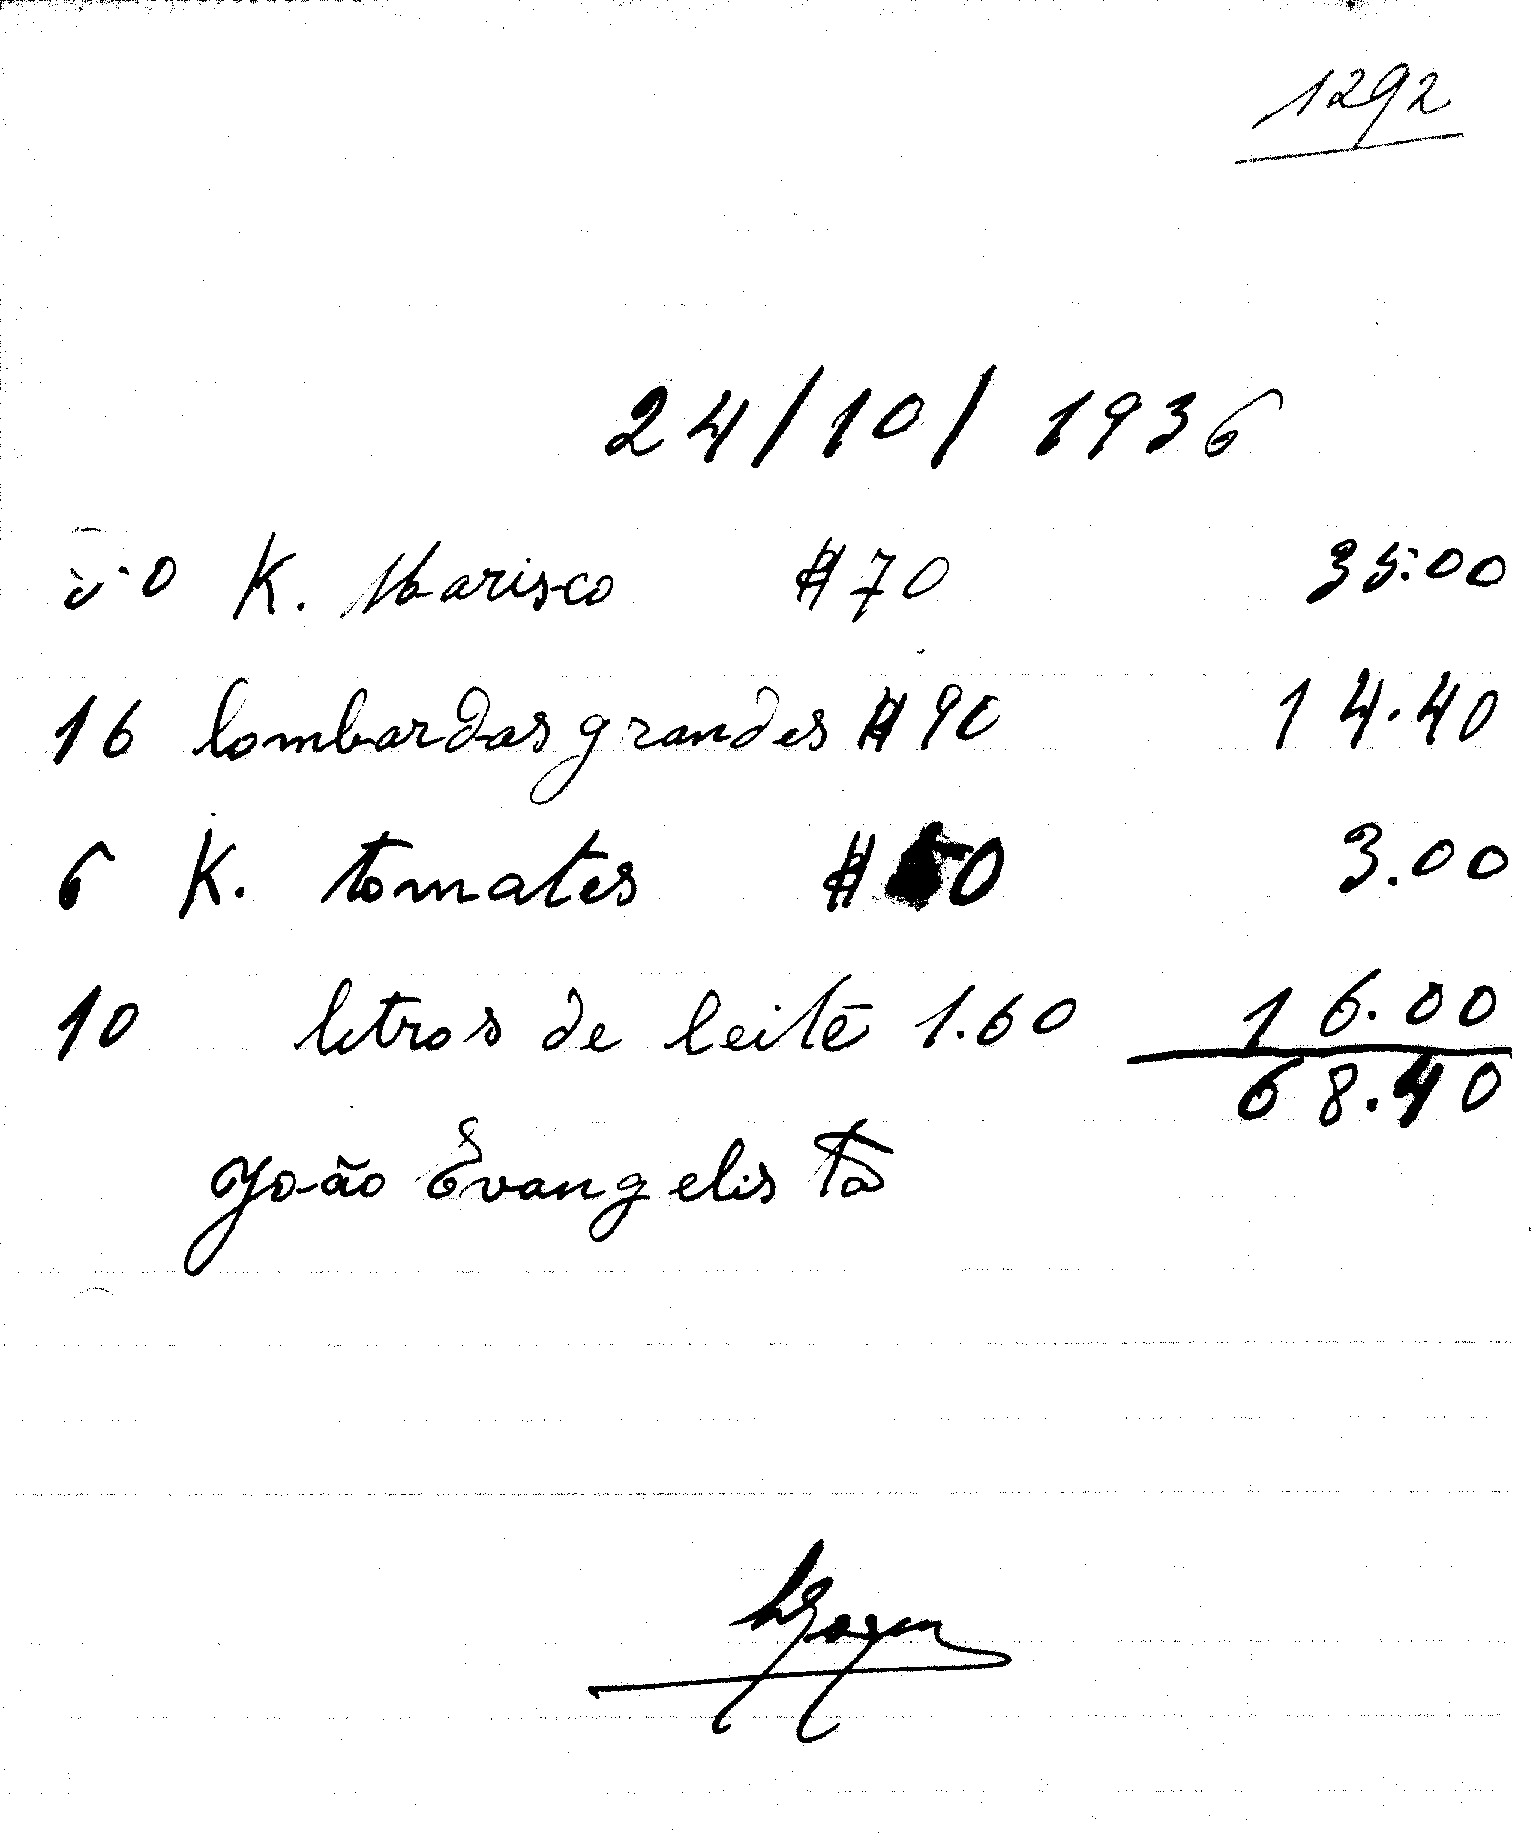 1292
24/10/1936
50 K. Marisco $70 35.00
16 lombardas grandes $90 14.40
6 K. tomates $50 3.00
10 letros de leite 1.60 16.00
68.40
João Evangelista